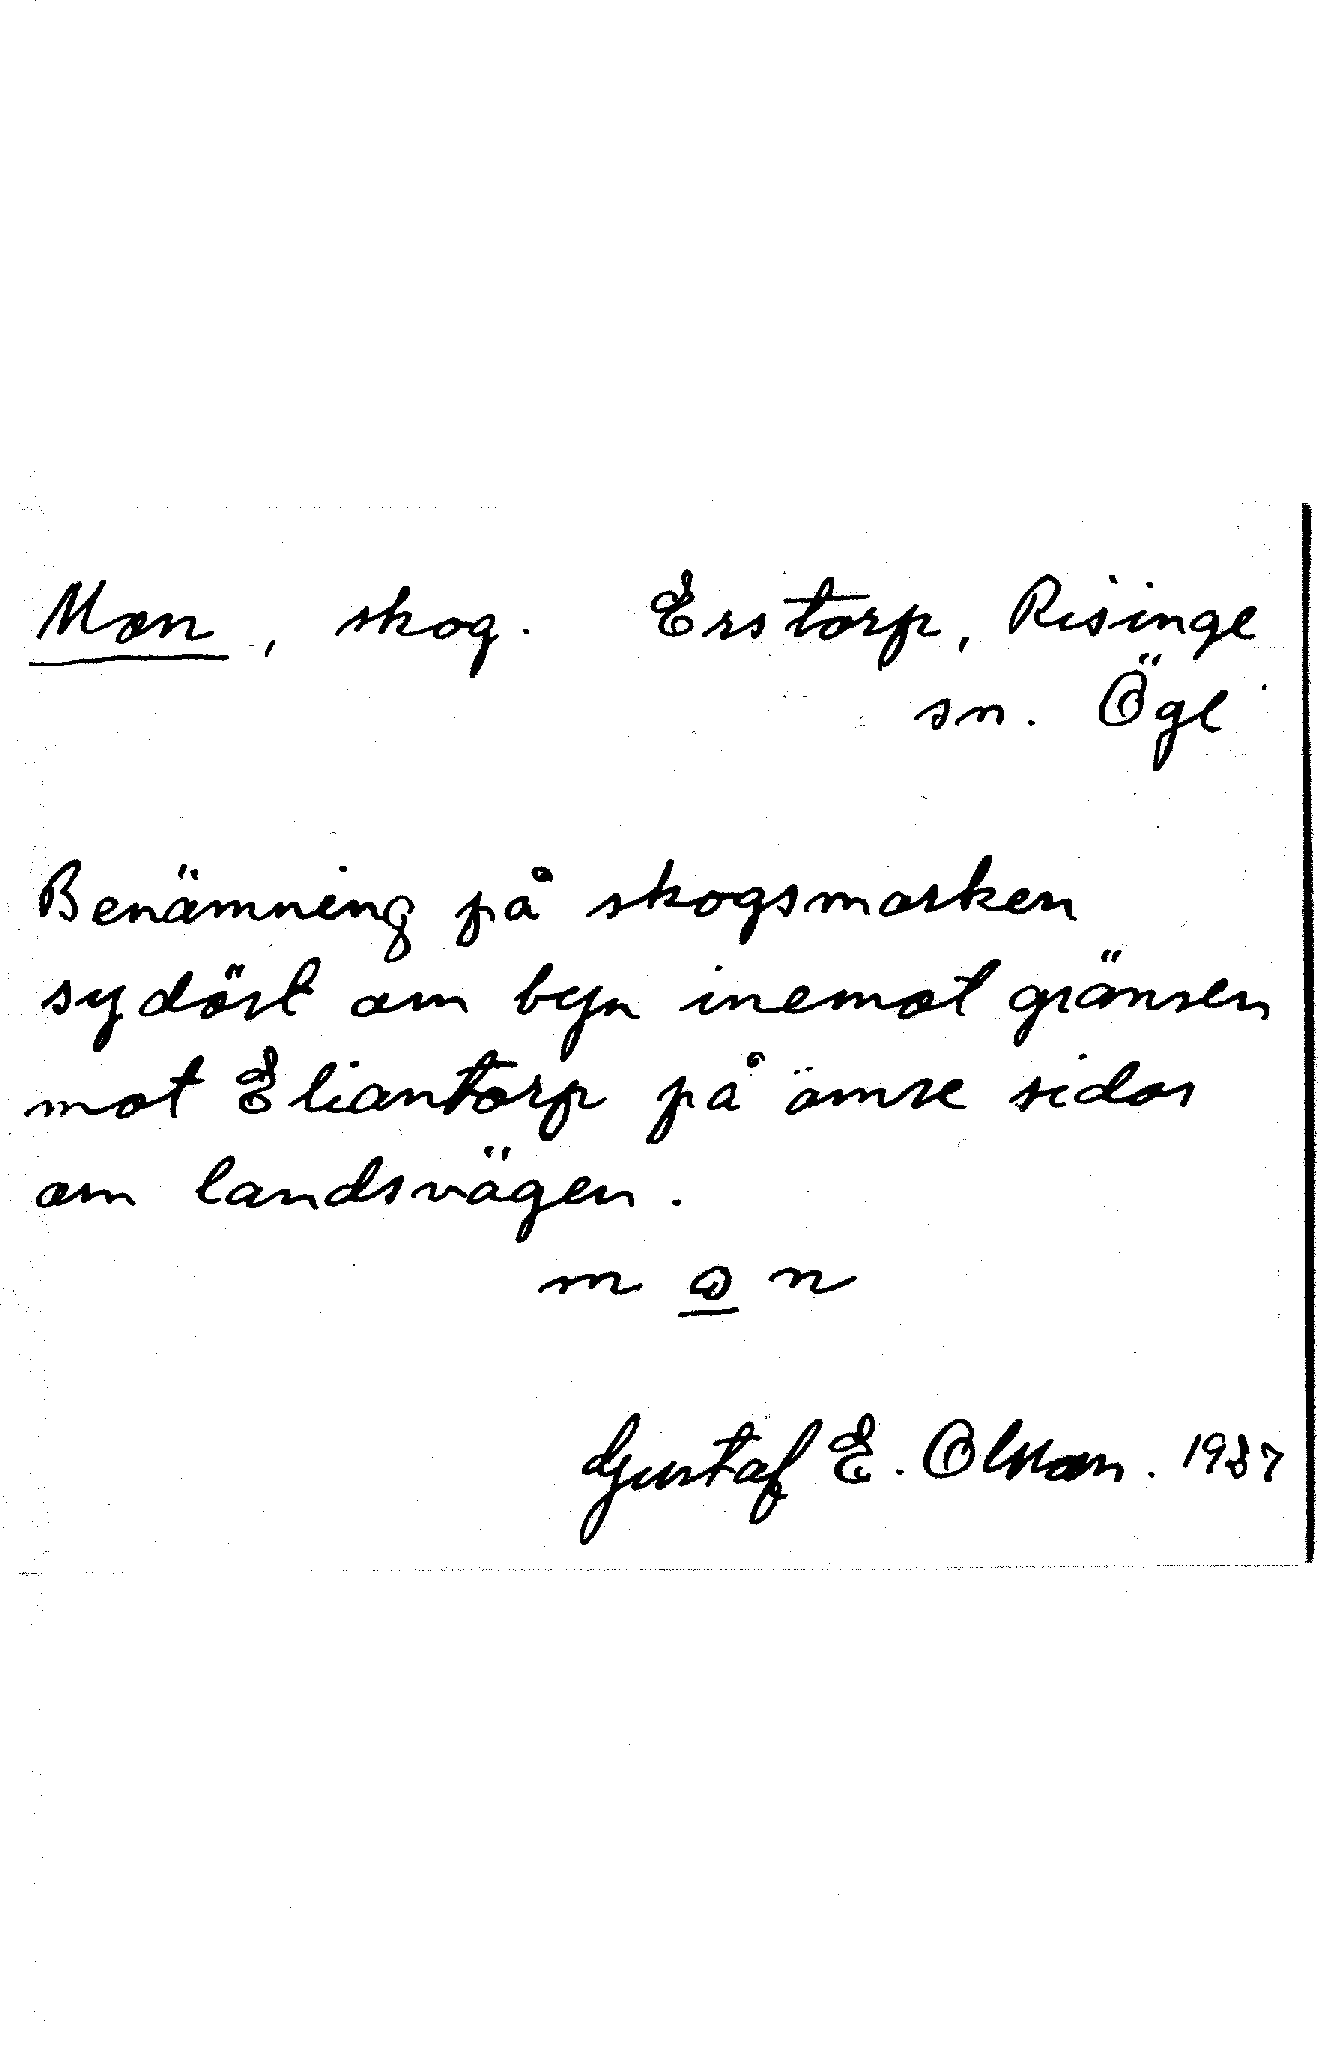 Mon, skog. Erstorp, Risinge
sn. Ögl
Benämning på skogsmarken
sydöst om byn inemot gränsen
mot Eliantorp på ömse sidor
om landsvägen.
m o n
Gustaf E. Olsson. 1937